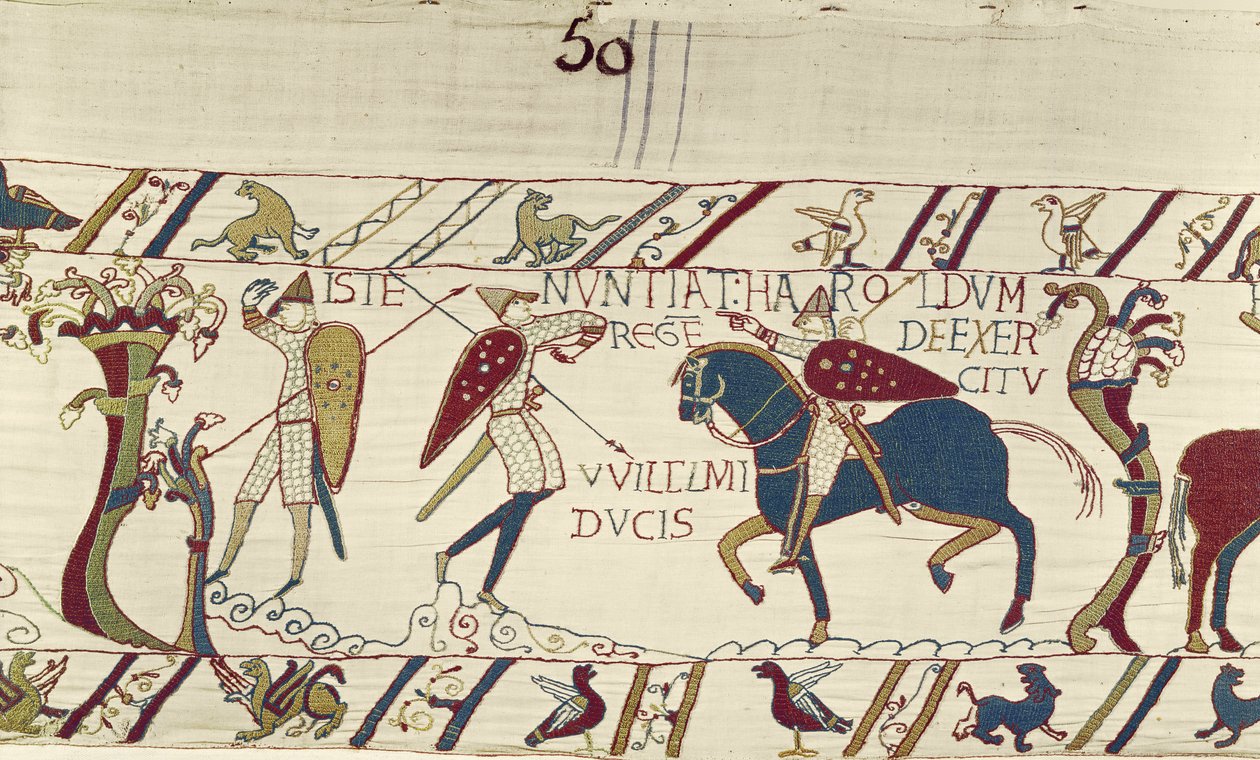 50
ISTE NVNTIAT:HAROLDVM
REGĒ DEEXER
CITV
VVILELMI
DVCIS